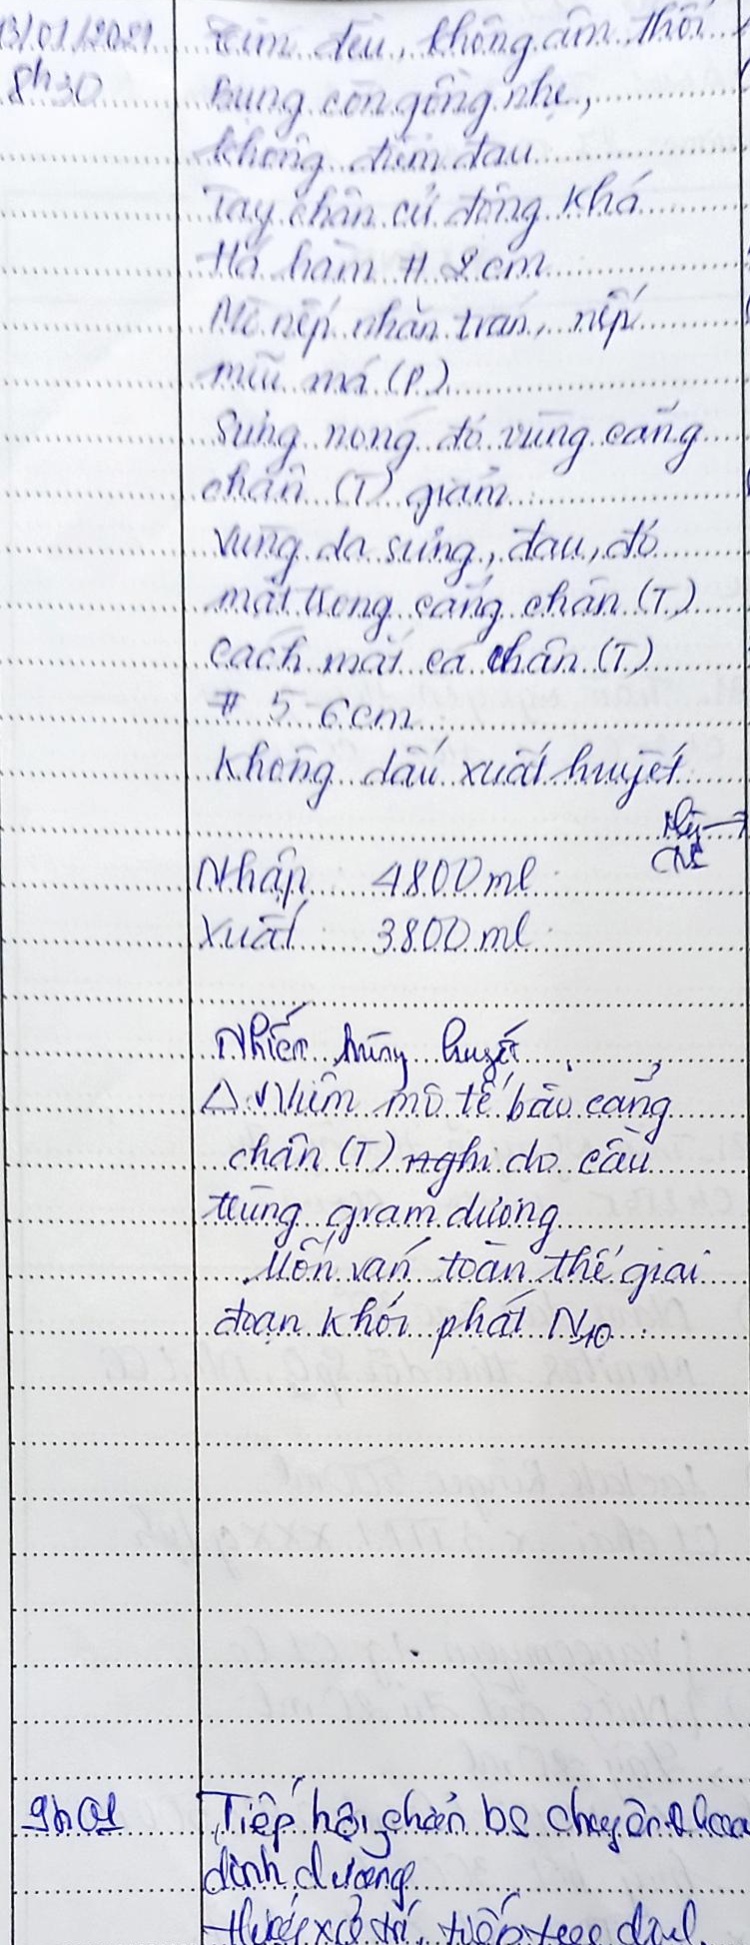 13/01/2021 Tim đều, không âm thổi
8h30 Bụng còn gồng nhẹ,
không điểm đau
Tay chân cử động khá
Há hàm # 2cm
Mờ nếp nhăn trán, nếp
mũi má (P)
Sưng nóng đỏ vùng cẳng
chân (T) giảm
Vùng da sưng, đau, đỏ
mặt trong cẳng chân (T)
cách mắt cá chân (T)
# 5-6cm
Không dấu xuất huyết
Nhập: 4800ml
Xuất: 3800ml
Nhiễm trùng huyết
△ Viêm mô tế bào cẳng
chân (T) nghi do cầu
trùng gram dương
Uốn ván toàn thể giai
đoạn khởi phát N10
9h01 Tiếp hội chẩn bs chuyên khoa
dinh dưỡng